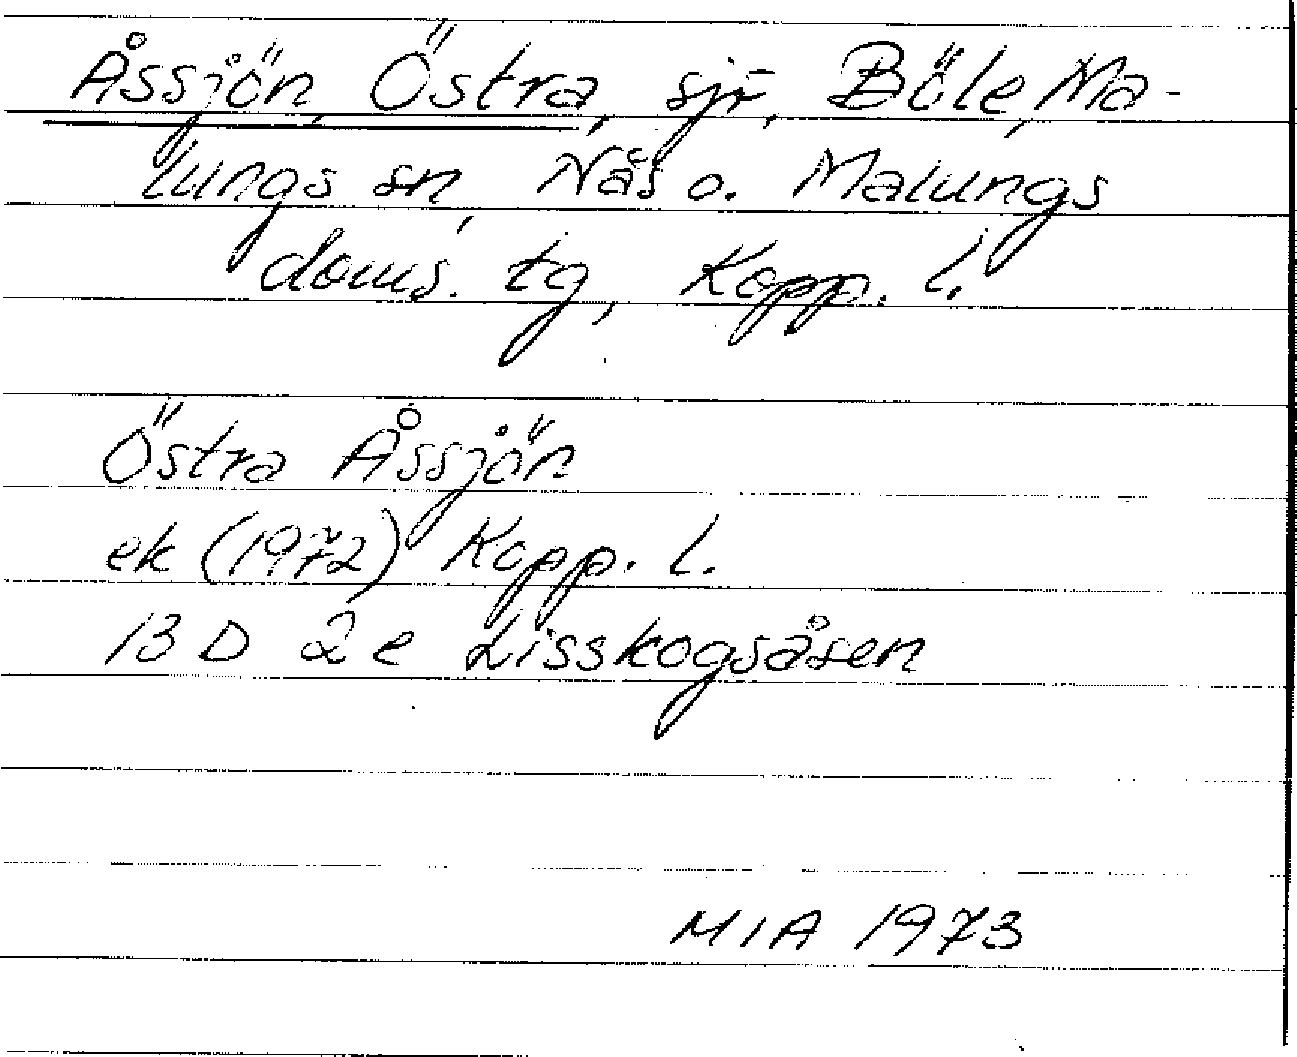 Åssjön, Östra, sjr, Böle, Ma-
lungs sn, Nås o. Malungs
doms. tg, Kopp. l.
Östra Åssjön
ek (1972) Kopp. l.
13 D 2e Lisskogsåsen
MIA 1973